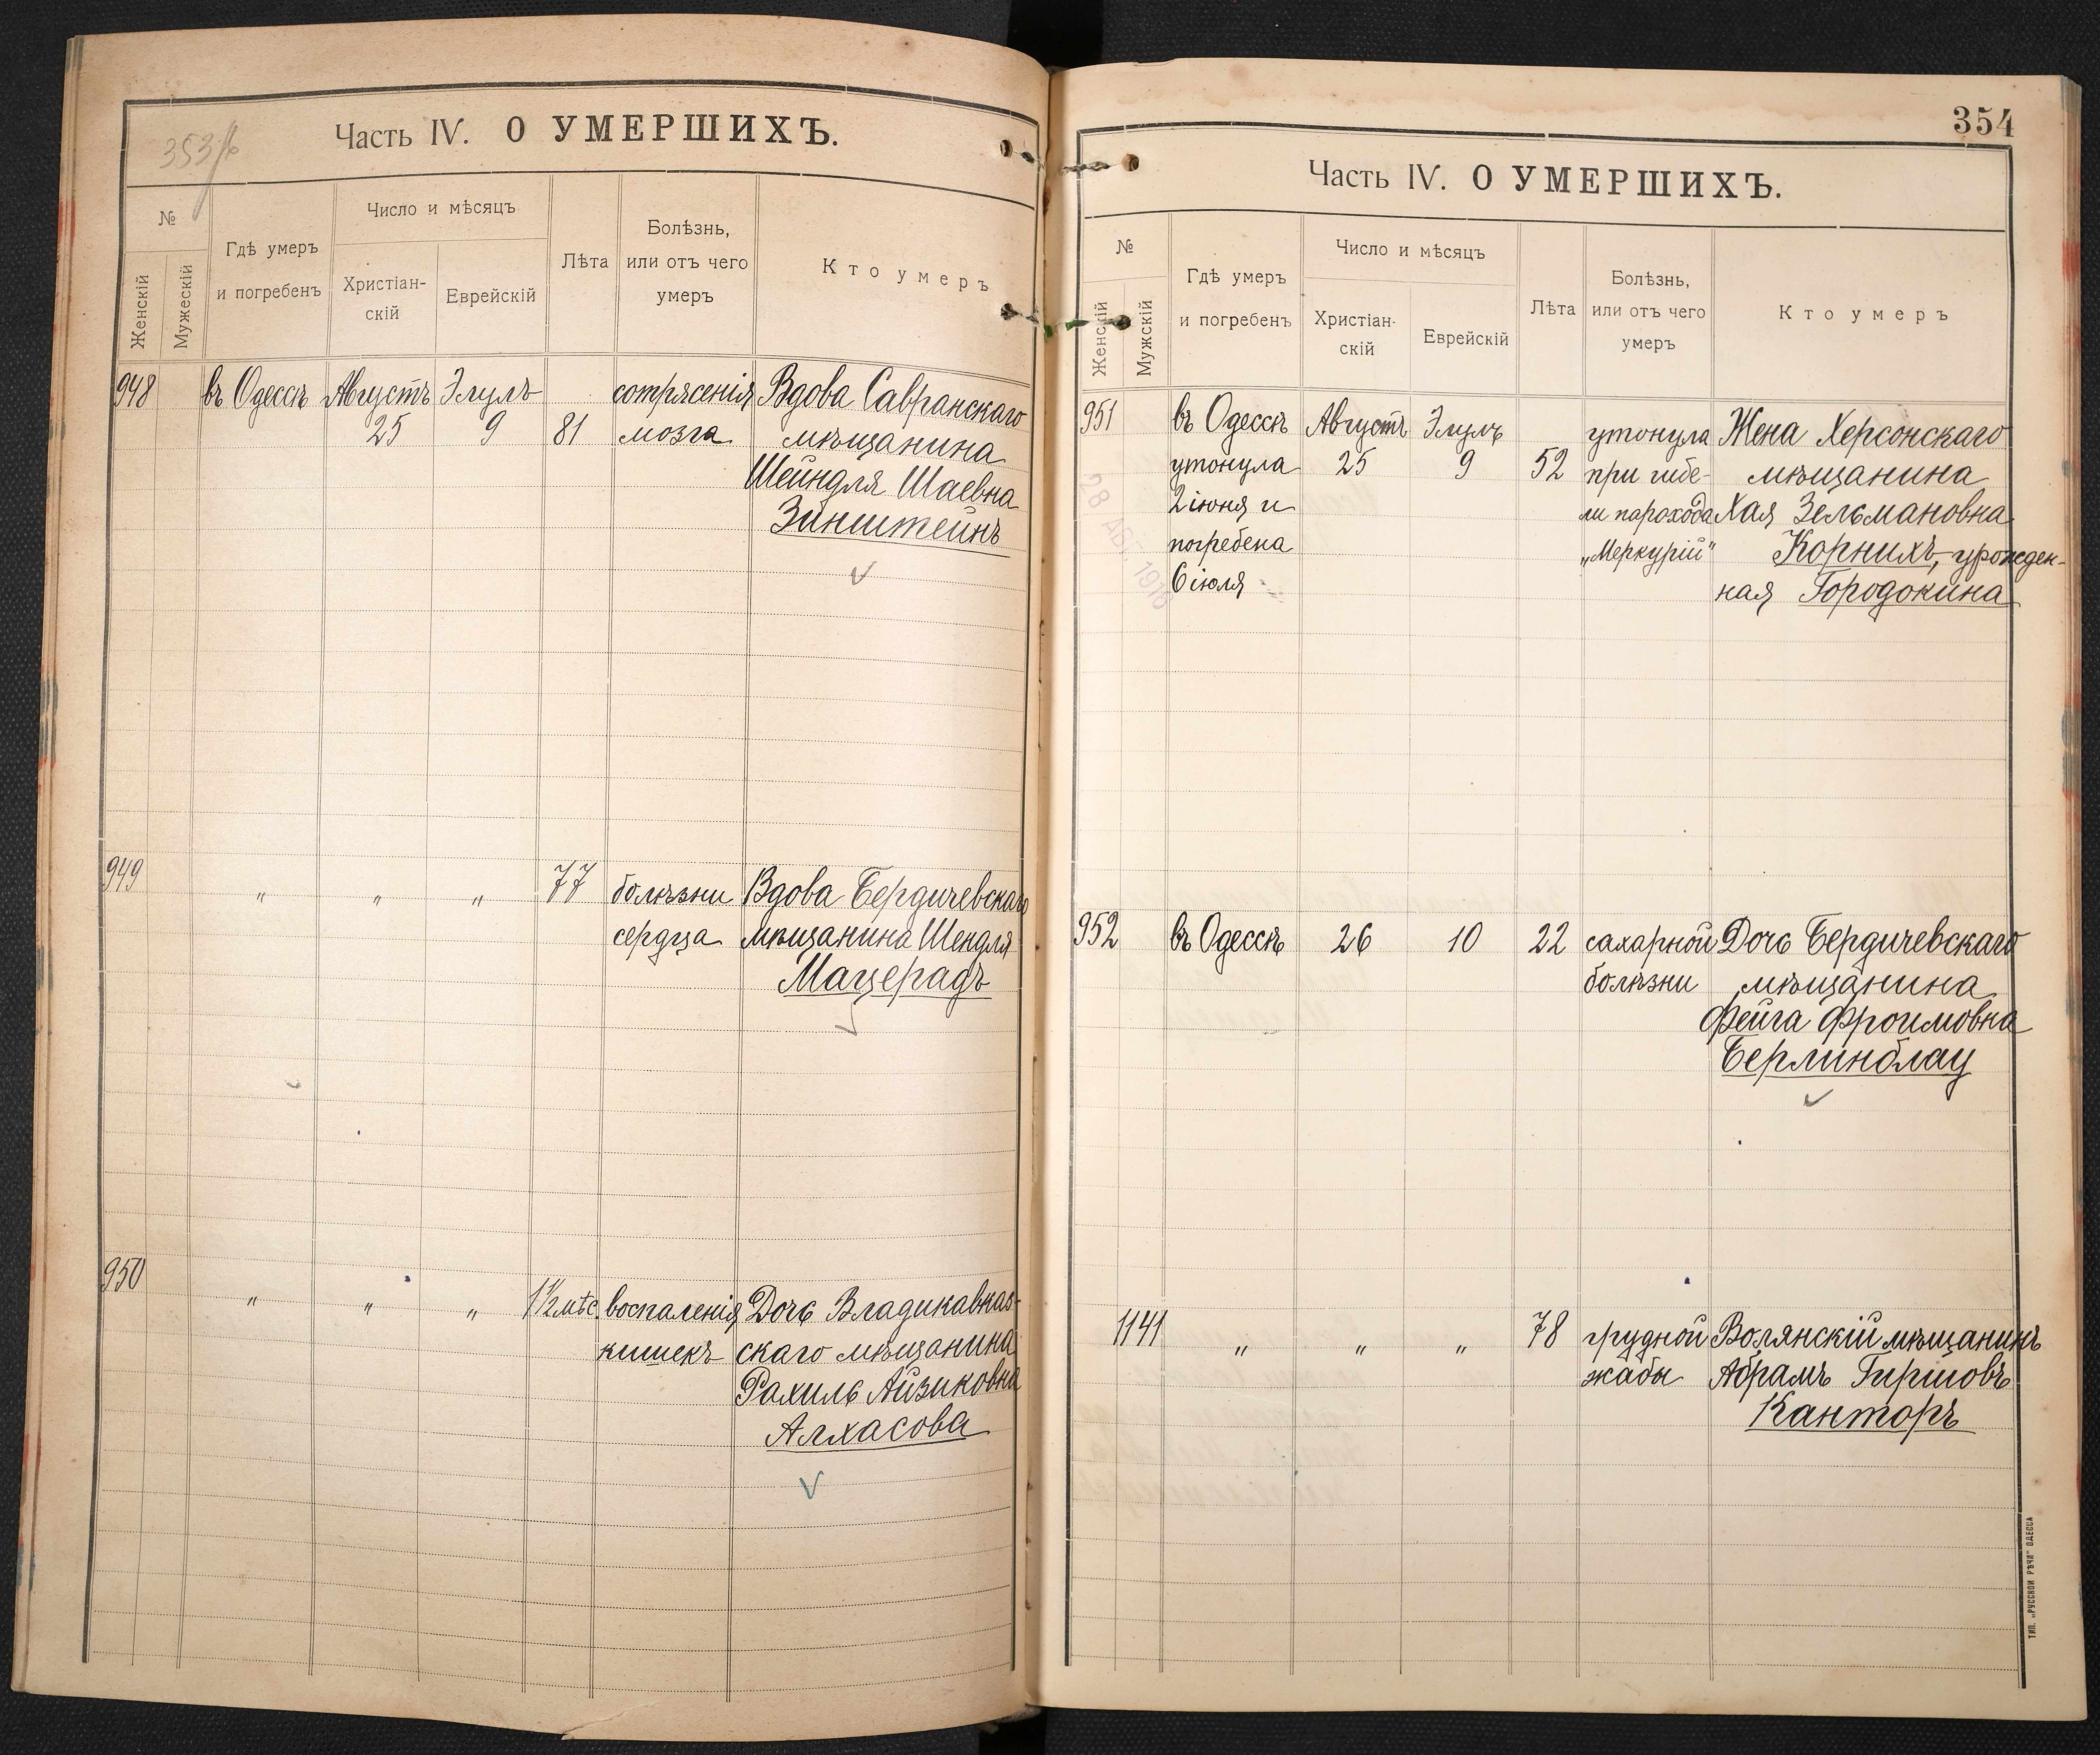 353 об
Часть IV. О УМЕРШИХЪ.
№
Женскій
Мужескій
Гдѣ умеръ
и погребенъ
Число и мѣсяцъ
Христіан-
скій
Еврейскій
Лѣта
Болѣзнь,
или отъ чего
умеръ
Кто умеръ
948 въ Одессѣ Августъ Элулъ сотрясенія Вдова Савранскаго
25 9 81 мозга мѣщанина
Шейндля Шаевна
Зинштейнъ
949 " " " 77 болѣзни Вдова Бердичевскаго
сердца мѣщанина Шендля
Мацерадъ
950 " " " 1½ мѣс. воспаленія Дочь Владикавказ-
кишекъ скаго мѣщанина
Рахиль Айзиковна
Алхасова
354
Часть IV. О УМЕРШИХЪ.
№
Женскій
Мужскій
Гдѣ умеръ
и погребенъ
Число и мѣсяцъ
Христіан-
скій
Еврейскій
Лѣта
Болѣзнь,
или отъ чего
умеръ
Кто умеръ
951 въ Одессѣ Августъ Элулъ утонула Жена Херсонскаго
утонула 25 9 52 при гибе- мѣщанина
2 іюня и ли парохода Хая Зельмановна
погребена „Меркурій" Корнихъ, урожден-
6 іюля ная Городокина
28 АВГ. 1916
952 въ Одессѣ 26 10 22 сахарной Дочь Бердичевскаго
болѣзни мѣщанина
Фейга Фроимовна
Берлинблау
1141 " " " 78 грудной Волянскій мѣщанинъ
жабы Абрамъ Гиршовъ
Канторъ
ТИП. „РУССКОЙ РѢЧИ" ОДЕССА